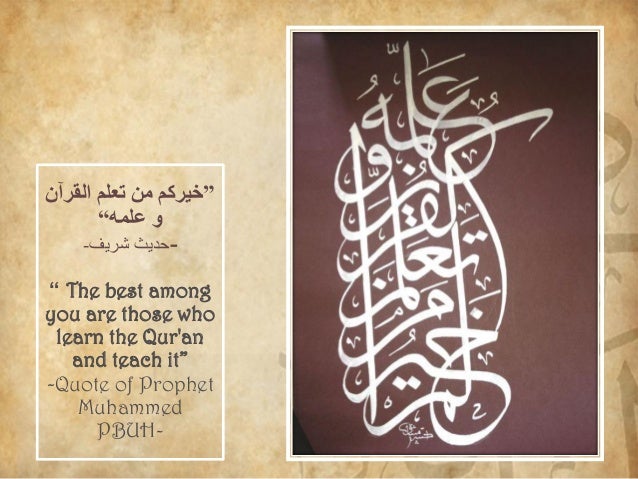 ”خيركم من تعلم القرآن
و علمه“
-حديث شريف-
“ The best among
you are those who
learn the Qur'an
and teach it”
-Quote of Prophet
Muhammed
PBUH-
خيركم من تعلم القرآن وعلمه